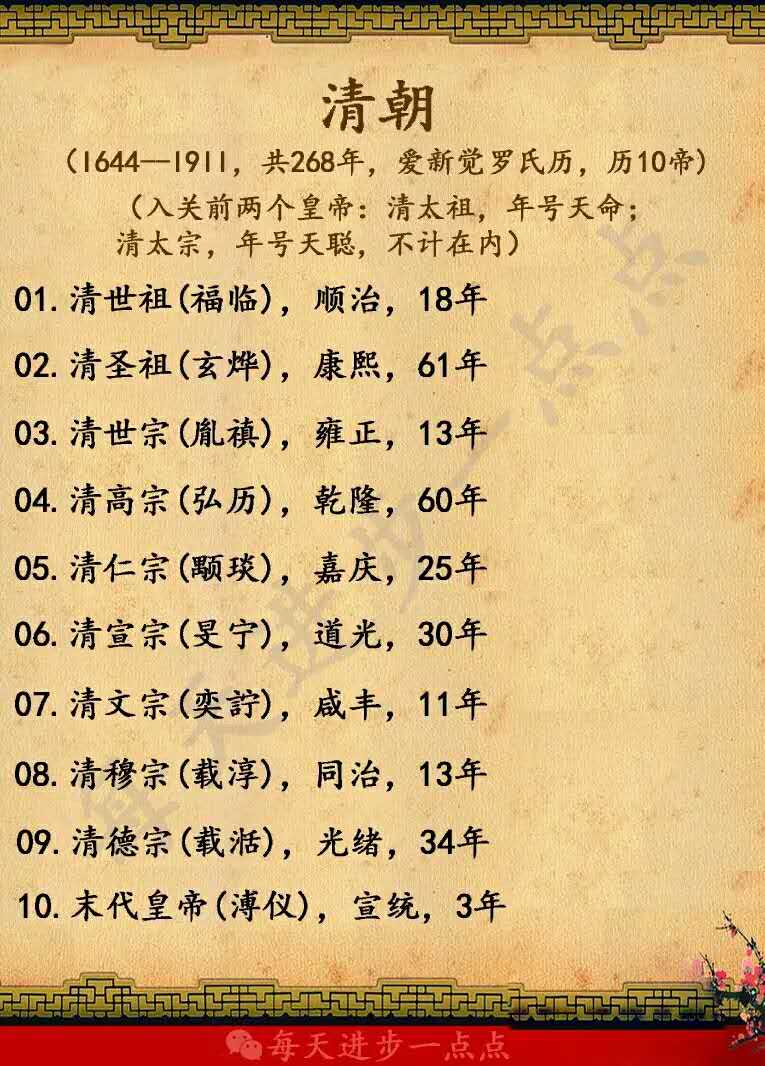 清朝
（1644--1911，共268年，爱新觉罗氏历，历10帝)
（入关前两个皇帝：清太祖，年号天命；
清太宗，年号天聪，不计在内）
01.清世祖(福临)，顺治，18年
02.清圣祖(玄烨)，康熙，61年
03.清世宗(胤禛)，雍正，13年
04.清高宗(弘历)，乾隆，60年
05.清仁宗(颙琰)，嘉庆，25年
06.清宣宗(旻宁)，道光，30年
07.清文宗(奕詝)，咸丰，11年
08.清穆宗(载淳)，同治，13年
09.清德宗(载湉)，光绪，34年
10.末代皇帝(溥仪)，宣统，3年
每天进步一点点
每天进步一点点